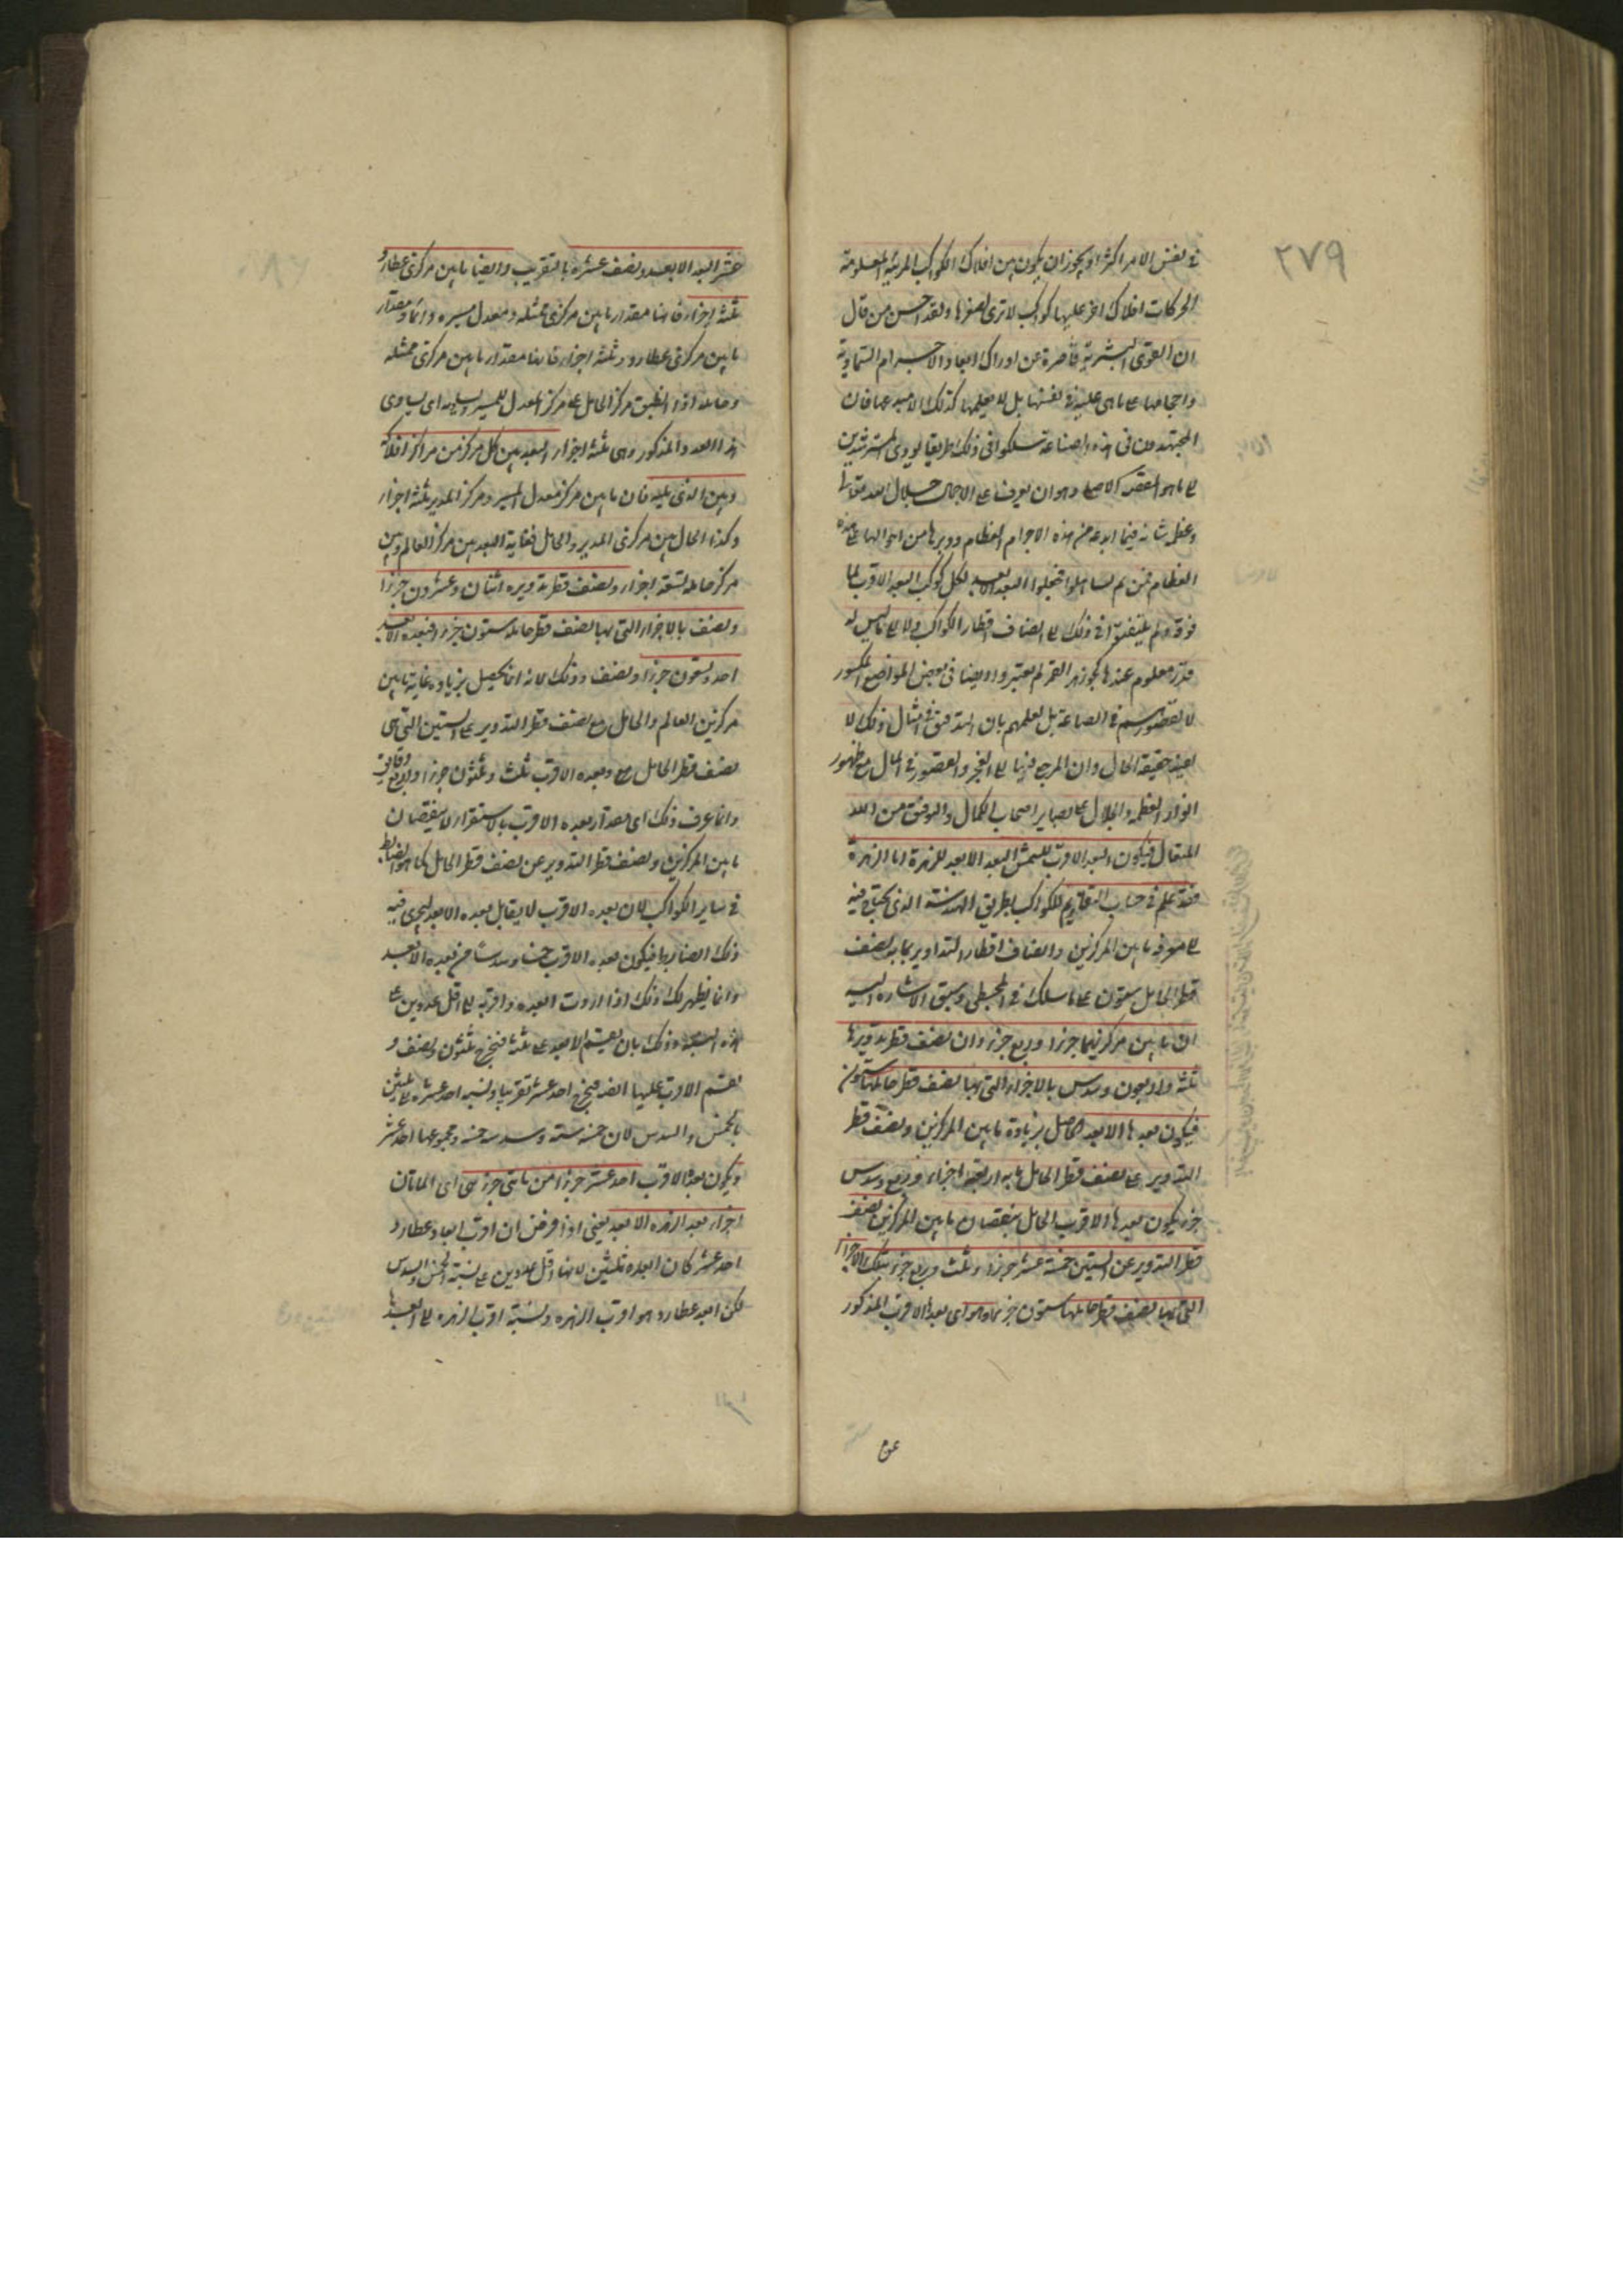 ٢٧٩
في نفس الامر اكثر او يجوز ان يكون بين افلاك الكواكب المرئية المعلومة
الحركات افلاك اخر عليها كواكب لا ترى لصغرها ولقد احسن من قال
ان القوى البشرية قاصرة عن ادراك ابعاد الاجرام السماوية
واحجامها على ما هى عليه فى نفسها بل لا يعلمها كذلك الا مبدعها فان
المجتهدون فى هذه الصناعة سلكوا فى ذلك طريقا يودى المسترشدين
الى ما هو المقصد الاصلى وهو ان يعرف على الاجمال جلال المبدع تعالى
وعظم شانه فيما ابدعه من هذه الاجرام العظام ودبرها من احوالها على هذه
العظام فمن ثم تساهلوا فجعلوا البعد الابعد لكل كوكب البعد الاقرب لما
فوقه ولم يلتفتوا فى ذلك الى انصاف اقطار الكواكب ولا الى ما ليس له
قدر معلوم عندها كجوزهر القمر لم يعتبروا ايضا فى بعض المواضع الكسور
لا لقصورهم فى الصناعة بل لعلمهم بان التدقيق فى امثال ذلك لا
يفيد حقيقة الحال وان المرجع فيها الى العجز والقصور فى المال مع ظهور
انوار العظمة والجلال على بصاير اصحاب الكمال والتوفيق من الله
المتعال فيكون البعد الاقرب للشمس البعد الابعد للزهرة اما الزهرة
فقد علم فى حساب التقاويم للكواكب بطريق الهندسة الذى يحتاج فيه
الى معرفة ما بين المركزين وانصاف اقطار التداوير بما به نصف
قطر الحامل ستون على ما سلك فى المجسطى وسبق الاشارة اليه
ان ما بين مركزيهما جزءا وربع جزء وان نصف قطر تدويرها
ثلثة واربعون وسدس بالاجزاء التى بها نصف قطر حاملها ستون
فيكون بعدها الابعد الحاصل بزيادة ما بين المركزين ونصف قطر
التدوير على نصف قطر الحامل مائة اربعة اجزاء وربع وسدس
جزء ويكون بعدها الاقرب الحاصل بنقصان ما بين المركزين ونصف
قطر التدوير عن الستين خمسة عشر جزءا وثلث وربع جزء بتلك الاجزاء
التى بها نصف قطر حاملها ستون جزءا وهو اى بعدها الاقرب المذكور
عشر البعد الابعد ونصف عشره بالتقريب وايضا ما بين مركزى عطارد
ثلثة اجزاء فانها مقدار ما بين مركزى ممثله ومعدل مسيره وانما مقدار
ما بين مركزى عطارد وثلثة اجزاء فانها مقدار ما بين مركزى ممثله
وحامله اذا انطبق مركز الحامل على مركز المعدل للمسير وساوه اى يساوى
هذا البعد والمذكور وهى ثلثة اجزاء البعد بين كل مركز من مراكز افلاكه
وبين الذى يليه فان ما بين مركز معدل المسير ومركز المدير ثلثة اجزاء
وكذا الحال بين مركزى المدير والحامل فغاية البعد بين مركز العالم وبين
مركز حامله تسعة اجزاء ونصف قطر تدويره اثنان وعشرون جزءا
ونصف بالاجزاء التى بها نصف قطر حامله ستون جزءا فبعده الابعد
احد وتسعون جزءا ونصف وذلك لانه انما يحصل بزيادة غاية ما بين
مركزين العالم والحامل مع نصف قطر التدوير على الستين التى هى
نصف قطر الحامل مع وبعده الاقرب ثلث وثلثون جزءا واربع دقايق
وانما عرف ذلك اى مقدار بعده الاقرب بالاستقراء لا بنقصان
ما بين المركزين ونصف قطر التدوير عن نصف قطر الحامل كما هو الضابط
فى ساير الكواكب لان بعده الاقرب لا يقابل بعده الابعد ليجرى فيه
ذلك الضابط فيكون بعده الاقرب خمسا وسدسا من بعده الابعد
وانما يظهر لك ذلك اذا اردت ابعده واقربه الى اقل عددين على
هذه النسبة وذلك بان يقسم الابعد على ثلثة فيخرج ثلثون ونصف و
يقسم الاقرب عليها ايضا فيخرج احد عشر تقريبا ونسبة احد عشر الى ثلثين
بالخمس والسدس لان خمسه ستة وسدسه خمسة ومجموعهما احد عشر
ويكون بعده الاقرب احد عشر جزءا من مائتى جزء هى اى المائتان
اجزاء بعد الزهره الابعد يعنى اذا فرض ان اقرب ابعاد عطارد
احد عشر كان ابعده ثلثين لانها اقل عددين على نسبة الخمس والسدس
لكن ابعد عطارد هو اقرب الزهره ونسبة اقرب الزهره الى ابعدها